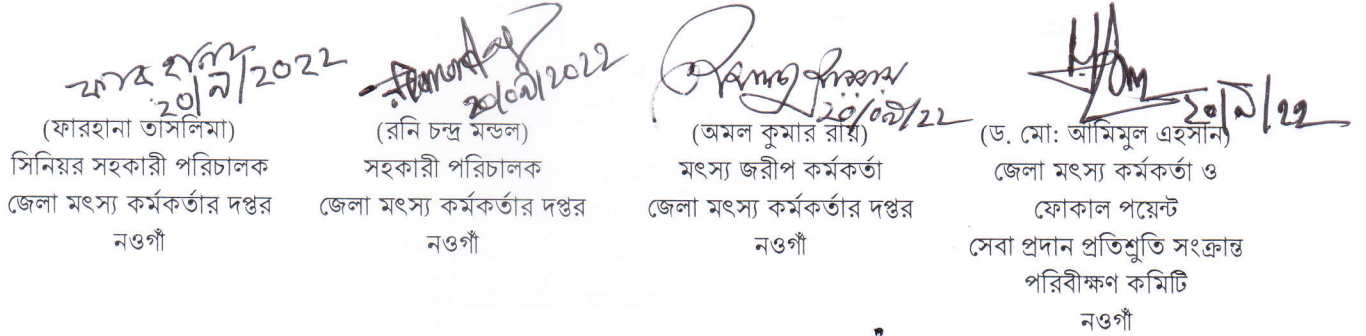 ফারহানা
২০/৯/2022
২০/০৯/2022
২০/০৯/22
২০/৯/২২
(ফারহানা তাসলিমা)
সিনিয়র সহকারী পরিচালক
জেলা মৎস্য কর্মকর্তার দপ্তর
নওগাঁ
(রনি চন্দ্র মন্ডল)
সহকারী পরিচালক
জেলা মৎস্য কর্মকর্তার দপ্তর
নওগাঁ
(অমল কুমার রায়)
মৎস্য জরীপ কর্মকর্তা
জেলা মৎস্য কর্মকর্তার দপ্তর
নওগাঁ
(ড. মো: আমিমুল এহসান)
জেলা মৎস্য কর্মকর্তা ও
ফোকাল পয়েন্ট
সেবা প্রদান প্রতিশ্রুতি সংক্রান্ত
পরিবীক্ষণ কমিটি
নওগাঁ